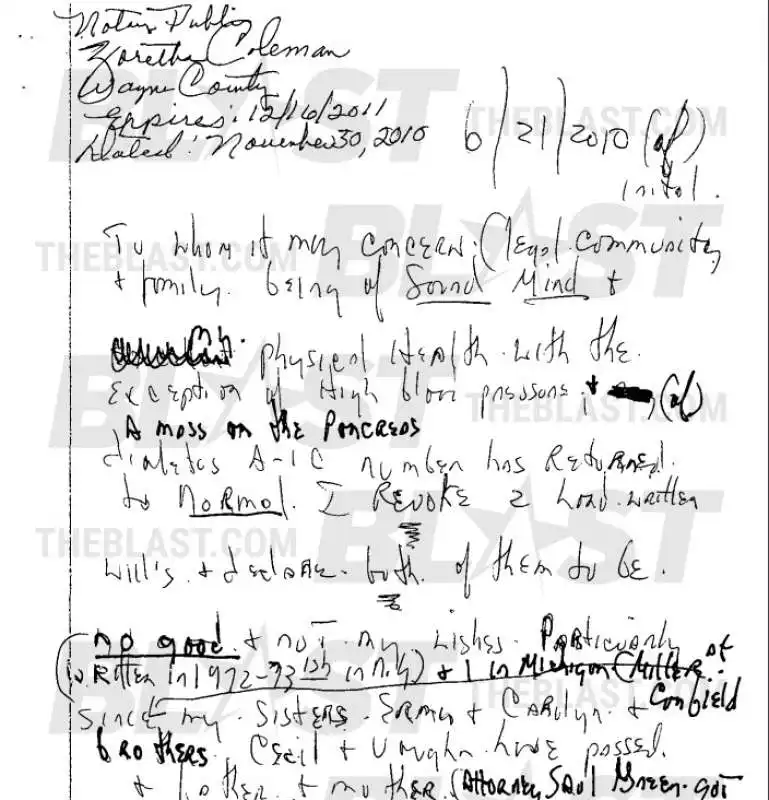 Notary Public
Zoretha Coleman
Wayne County
Expires: 12/16/2011
Dated: November 30, 2010
6/21/2010 (af)
Inital.
To whom it may concern; (legal community
+ family. being of Sound Mind +
physical Health with the
exception of High blood pressure, + (af)
A mass on the Pancreas
diabetes A-1C number has Returned
to Normal. I REVOKE 2 hand written
will's. + declare both of them to be.
no good + not my wishes. Particularly
written in 1972-73 in N.Y) + 1 in Michigan (Millers of
Canfield
Since my Sisters Erma + Carolyn +
brothers Cecil + Vaughn have passed.
+ father + mother. (Attorney Saul Green got
THEBLAST.COM
BLAST
THEBLAST.COM
BLAST
THEBLAST.COM
BLAST
THEBLAST.COM
BLAST
THEBLAST.COM
BLAST